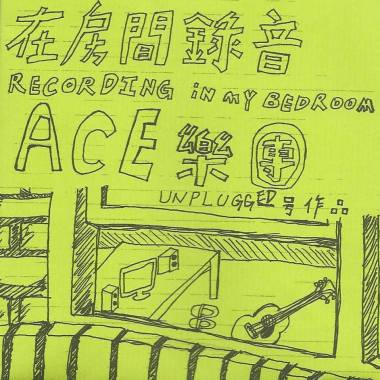 在房間錄音
RECORDING in my BEDROOM
ACE 樂團
UNPLUGGED号作品